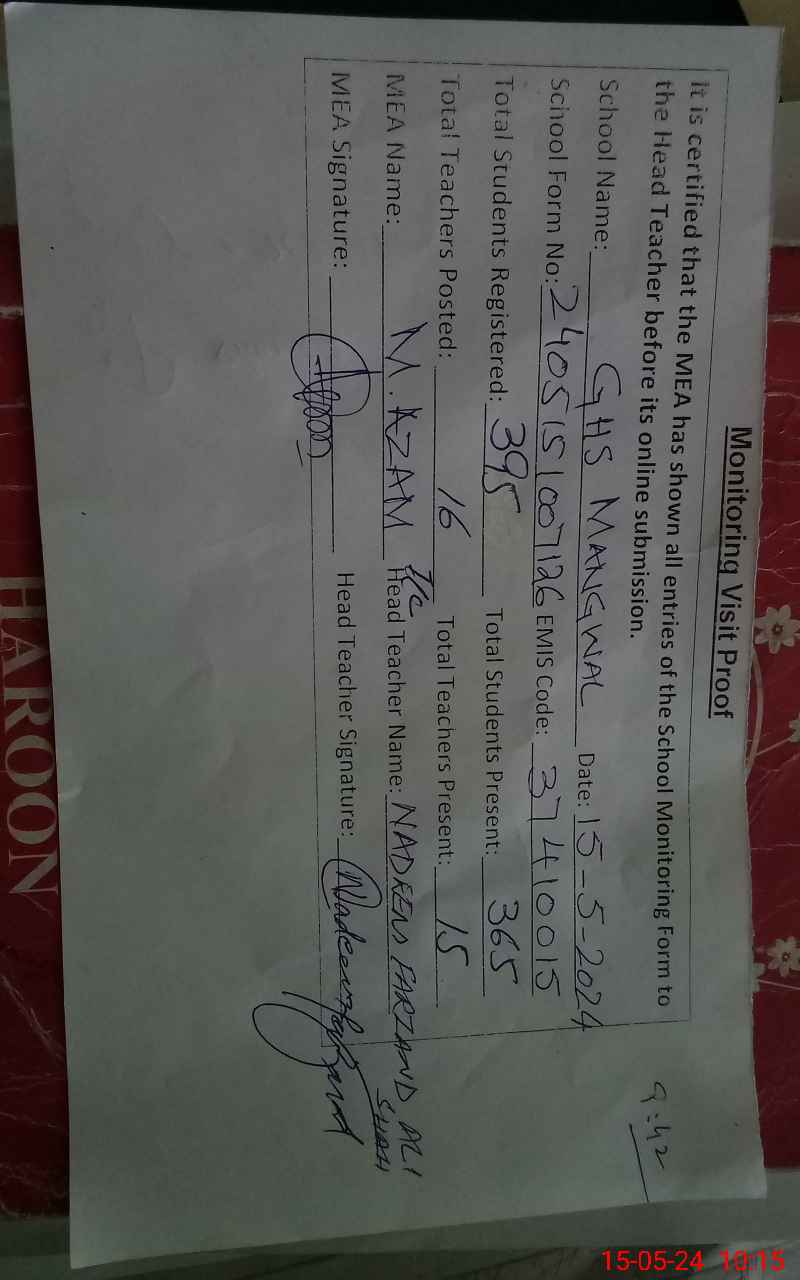 Monitoring Visit Proof
It is certified that the MEA has shown all entries of the School Monitoring Form to
the Head Teacher before its online submission.
School Name: GHS MANGWAL Date: 15-5-2024
School Form No: 2405151007126 EMIS Code: 37410015
Total Students Registered: 395 Total Students Present: 365
Total Teachers Posted: 16 Total Teachers Present: 15
MEA Name: M. AZAM I/C Head Teacher Name: NADEEM FARZAND ALI
SHAH
MEA Signature: Head Teacher Signature: Nadeem
9:42
HAROON
15-05-24 10:15